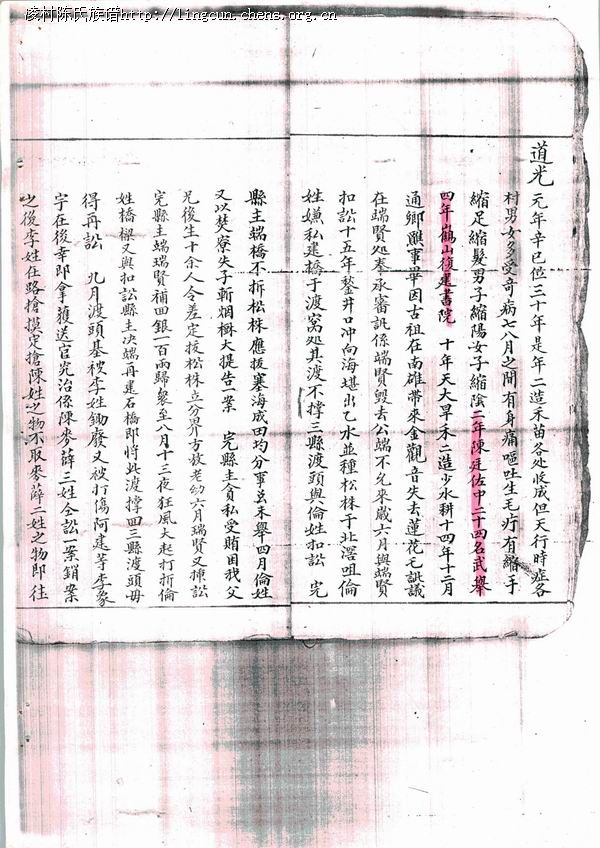 凌村陈氏族谱http://lingcun.chens.org.cn
道光元年辛巳位三十年是年二造禾苗各处收成但天行時症各
村男女多受奇病七八月之間有身痛嘔吐生毛疔有縮手
縮足縮髮男子縮陽女子縮陰二年陳廷佐中二十四名武舉
四年鶴山復建書院 十年天大旱禾二造少水耕十四年十二月
通鄉醮事畢因古祖在南雄帶來金觀音失去蓮花毛詆議
在端賢処拳承審訊係端賢毀去公端不允來歲六月與端賢
扣訟十五年鑿井口冲向海堪出乙水並種松株于北滘咀倫
姓嫌私建橋于渡窩処其渡不撑三縣渡頭與倫姓扣訟 完
縣主端橋不拆松株應拔塞海成田均分事茲未舉四月倫姓
又以焚寮失子斬烟樹大提告一案 完縣主貪私受賄困我父
兄後生十余人令差定拔松株立分界方放老幼六月瑞賢又揀訟
完縣主端瑞賢補回銀一百両歸衆至八月十三夜狂風大起打折倫
姓橋樑又與扣訟縣主决端再建石橋即將此渡撑回三縣渡頭毋
得再訟 九月渡頭基被李姓鋤廢又被打傷阿建等李象
宇在後幸即拿獲送官究治係陳麥薛三姓仝訟一案銷案
之後李姓在路搶摸定搶陳姓之物不取麥薛二姓之物即往